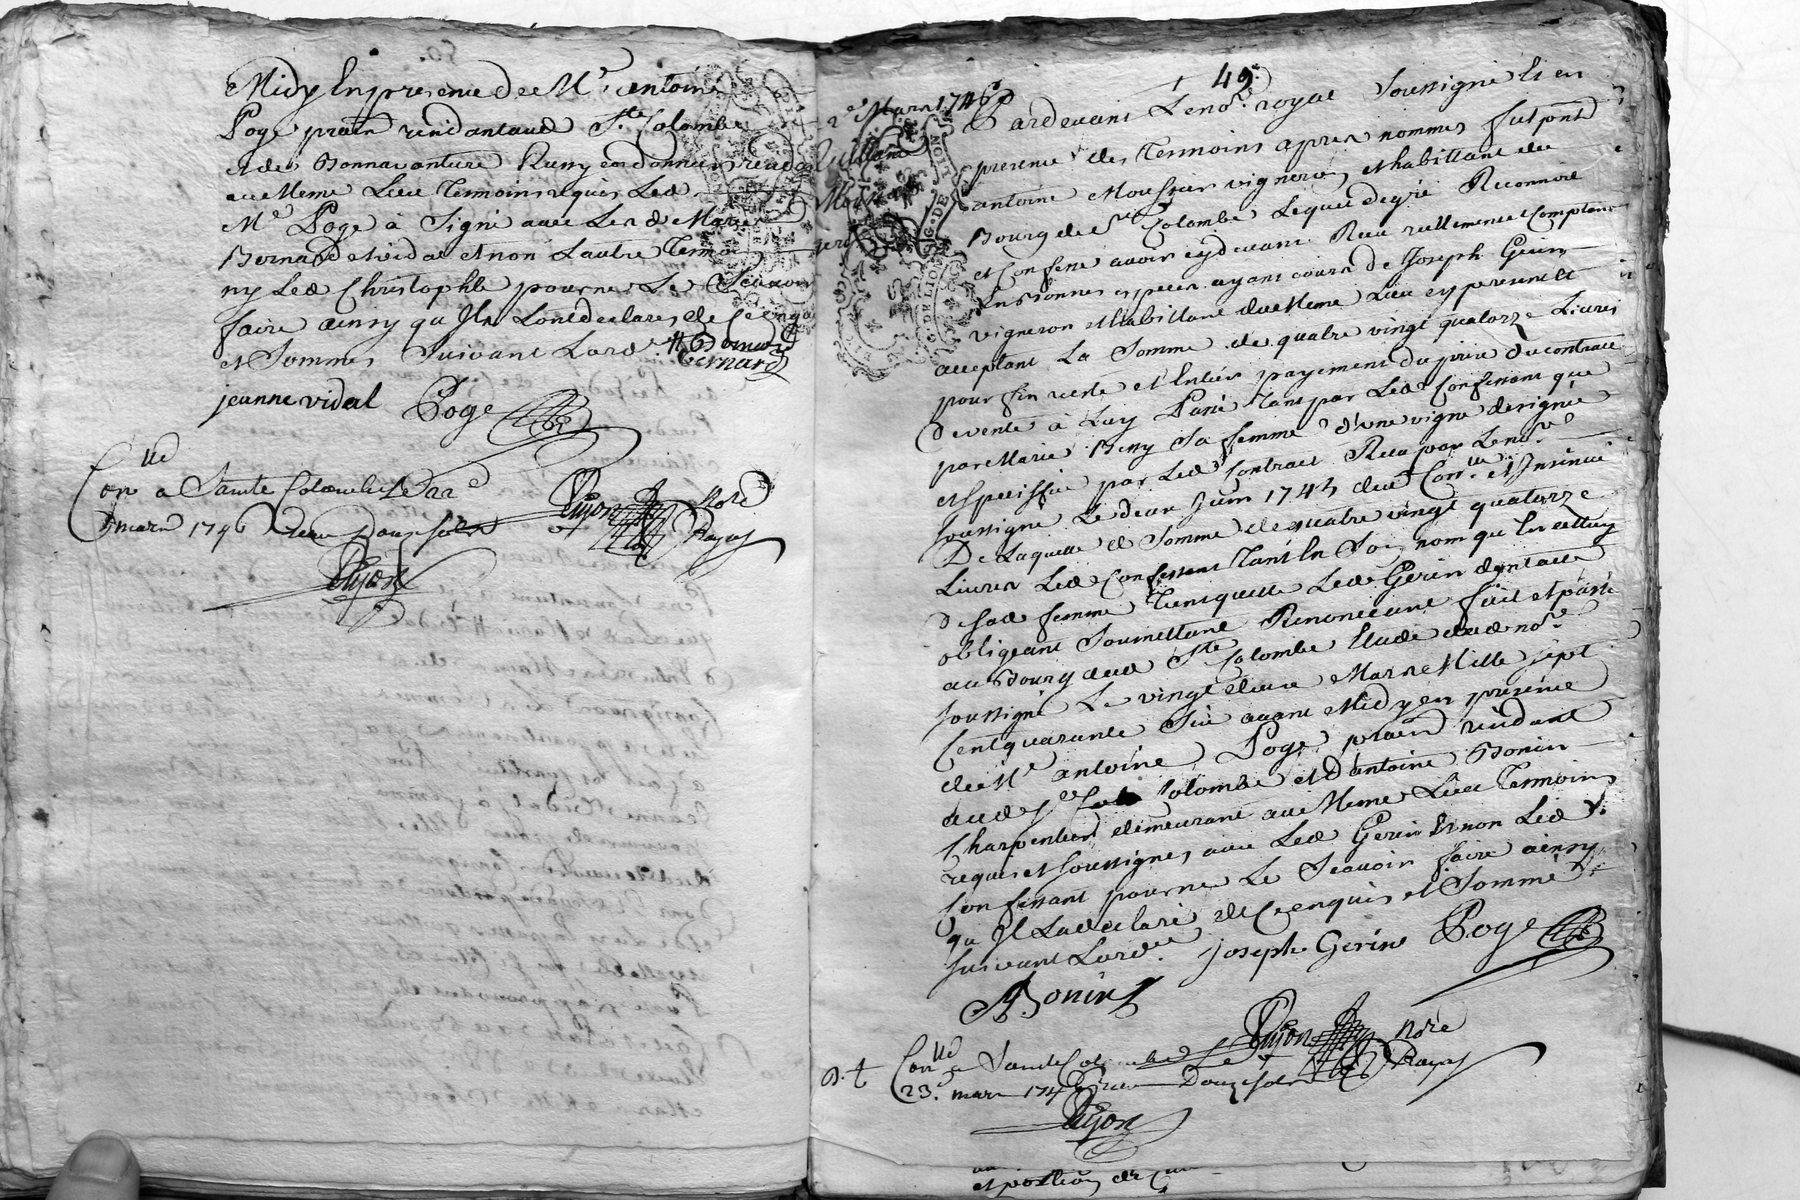 Midy En presence de Mr. antoine
Poge praticn residant aud Ste Colombe
et de Bonnavanture Remy cordonnier resid
au meme Lieu temoins requis Led
Mr. Poge à Signé avec Lesd Mar
Bernard et vidal et non Lautre Temoin
ny Led Christophle pour ne Le Scavoir
faire ainsy qu Ils Lont declarés de ce enquis
et Sommés Suivant Lord. Bernard
jeanne vidal Poge
Conlle a Sainte Colombe Le 22e
mars 1746 Receu Douze sols
Pujon Nore Royal
Pujon
49e
22e Mars 1746
Quittance
Moussier
gerin
Pardevant Le nore royal Soussigné Et en
presence des Temoins apres nommés fut pnt
antoine Moussier vigneron, et habittant du
Bourg de Ste Colombe Lequel de gré Reconnoit
et Confesse avoir cy devant Receu rellement et Comptant
En Bonnes especes ayant cours de Joseph Gerin
vigneron et habittant du Meme Lieu cy present et
acceptant La Somme de quatre vingt quatorze Livres
pour fin reste et Entier payement du prix du contract
de vente à Luy Passé tant par Led Confessant que
par Marie Remy Sa femme d'une vigne designée
et speciffiée par Led Contract Receu par Le nore
soussigné Le deux Juin 1745 due Conlle et Insinué
De Laquelle d Somme de quatre vingt quatorze
Livres Led Confessant tant En Son nom qu En celluy
de sad femme Tiens quitte Led Gerin dont acte
obligeant Soumettant Renoncant fait et passé
au Bourg dud Ste Colombe Etude dud nore
soussigné Le vingt deux Mars Mille sept
Cent quarante Six avant Midy en presence
de Mr antoine Poge praticn residant
aud Ste Colombe et d'antoine Bonin
Charpentier demeurant au Meme Lieu Temoins
requis et soussignés avec Led Gerin Et non Led
Confessant pour ne Le Scavoir faire ainsy
qu Il La declaré de Ce enquis et Sommé
suivant Lord.ce Joseph Gerin Poge
A Bonin
Pujon Nore Royal
Conlle a Sainte Colombe Le
23e mars 1746 Receu Douze sols
Pujon
et position de